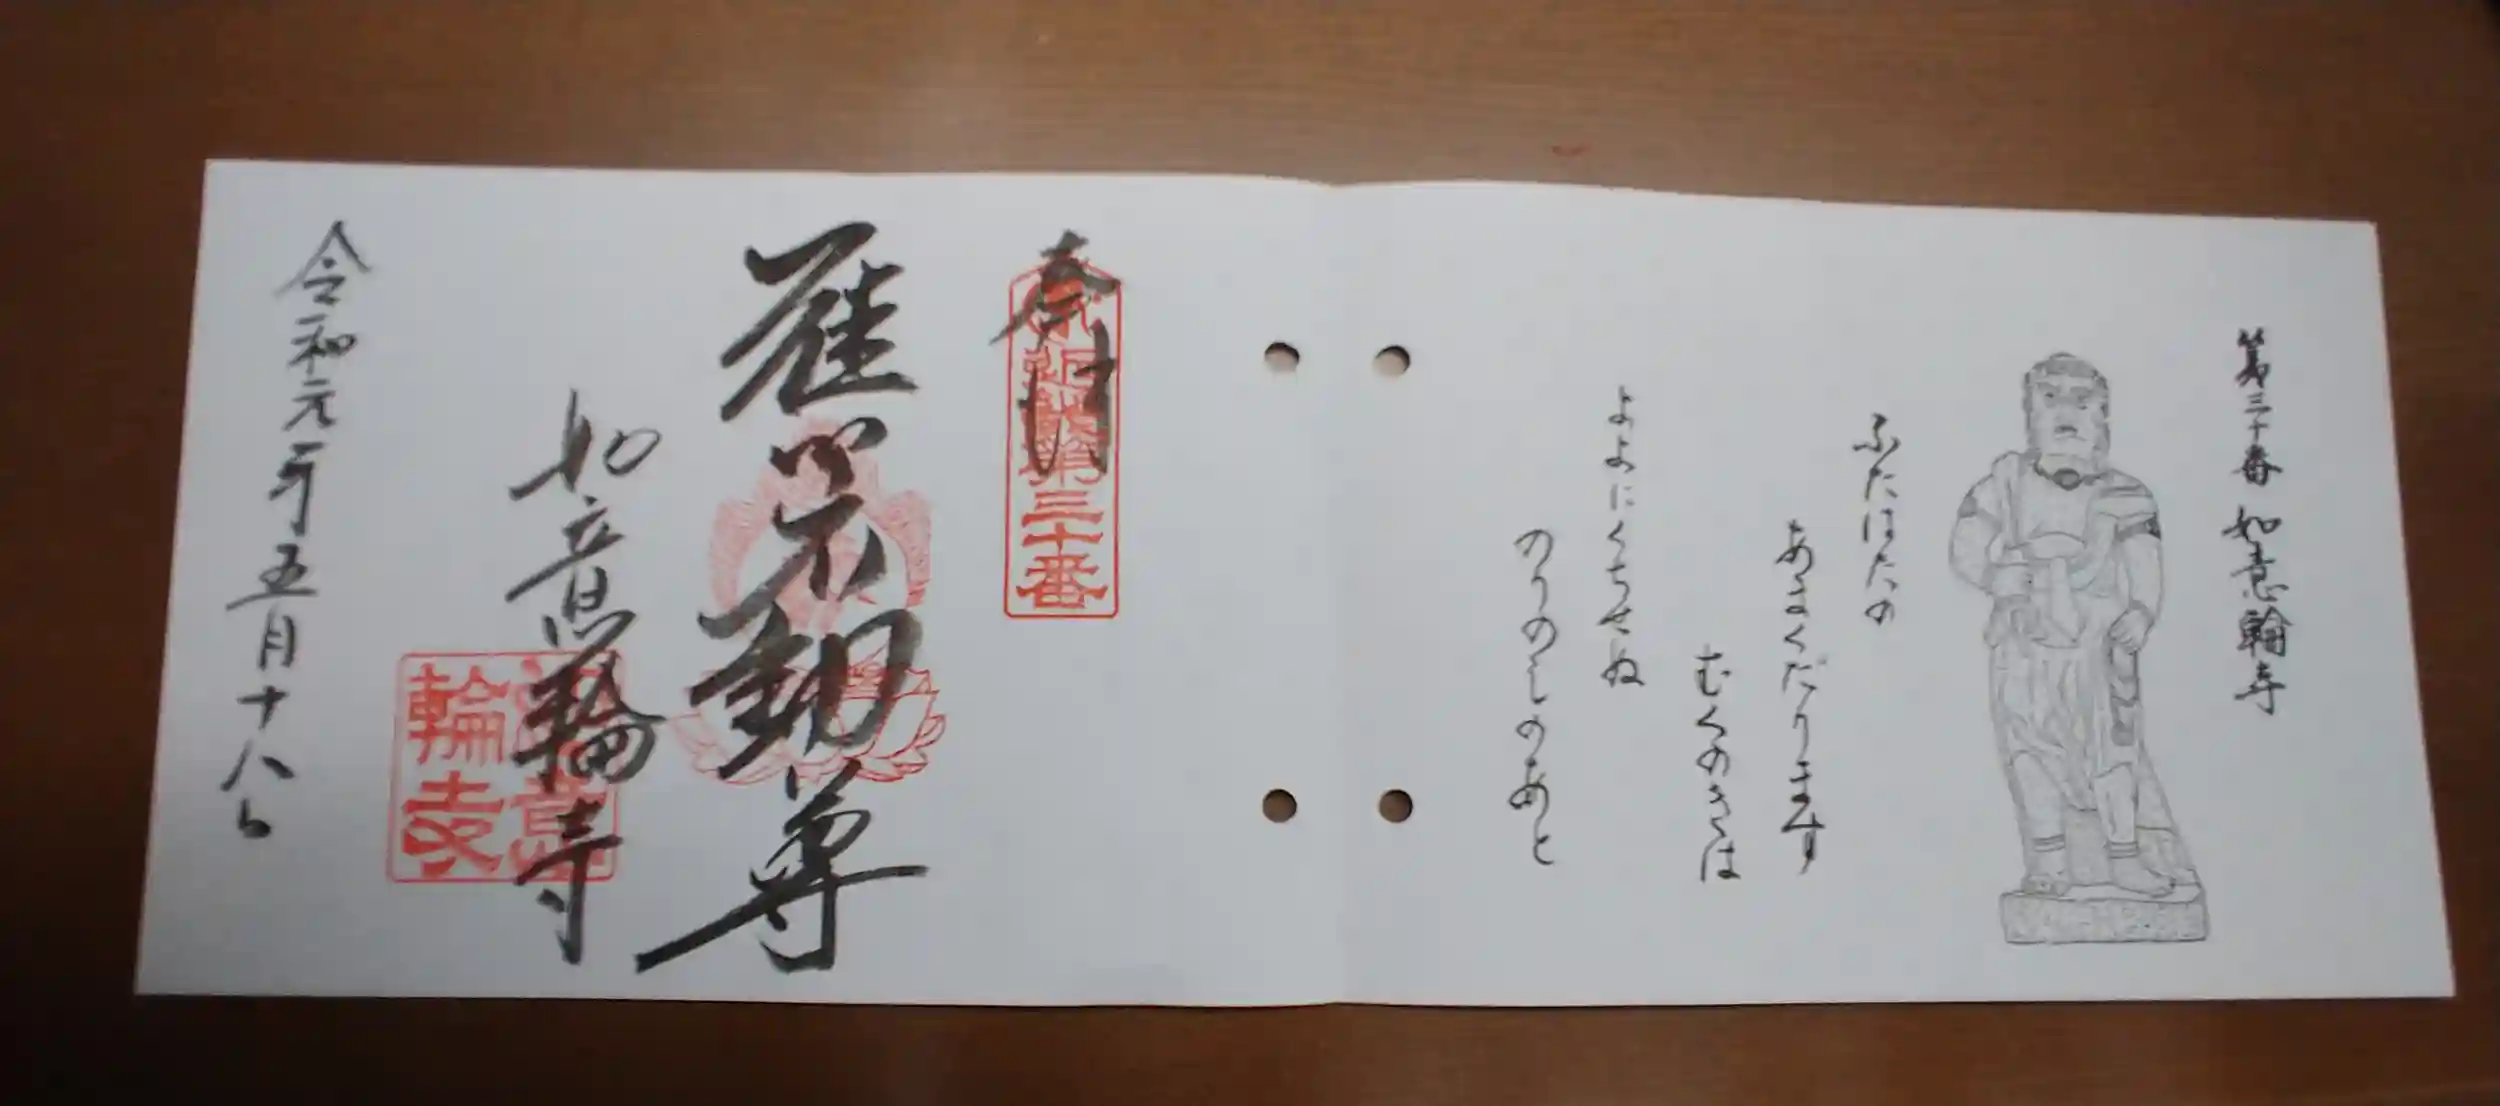 第三十番 如意輪寺
ふたはたの
あまくだります
むくのきは
よよにくちせぬ
のりのしのあと
奉拝
第三十番
不動尊
如意輪寺
如意輪寺
令和元年五月十八日